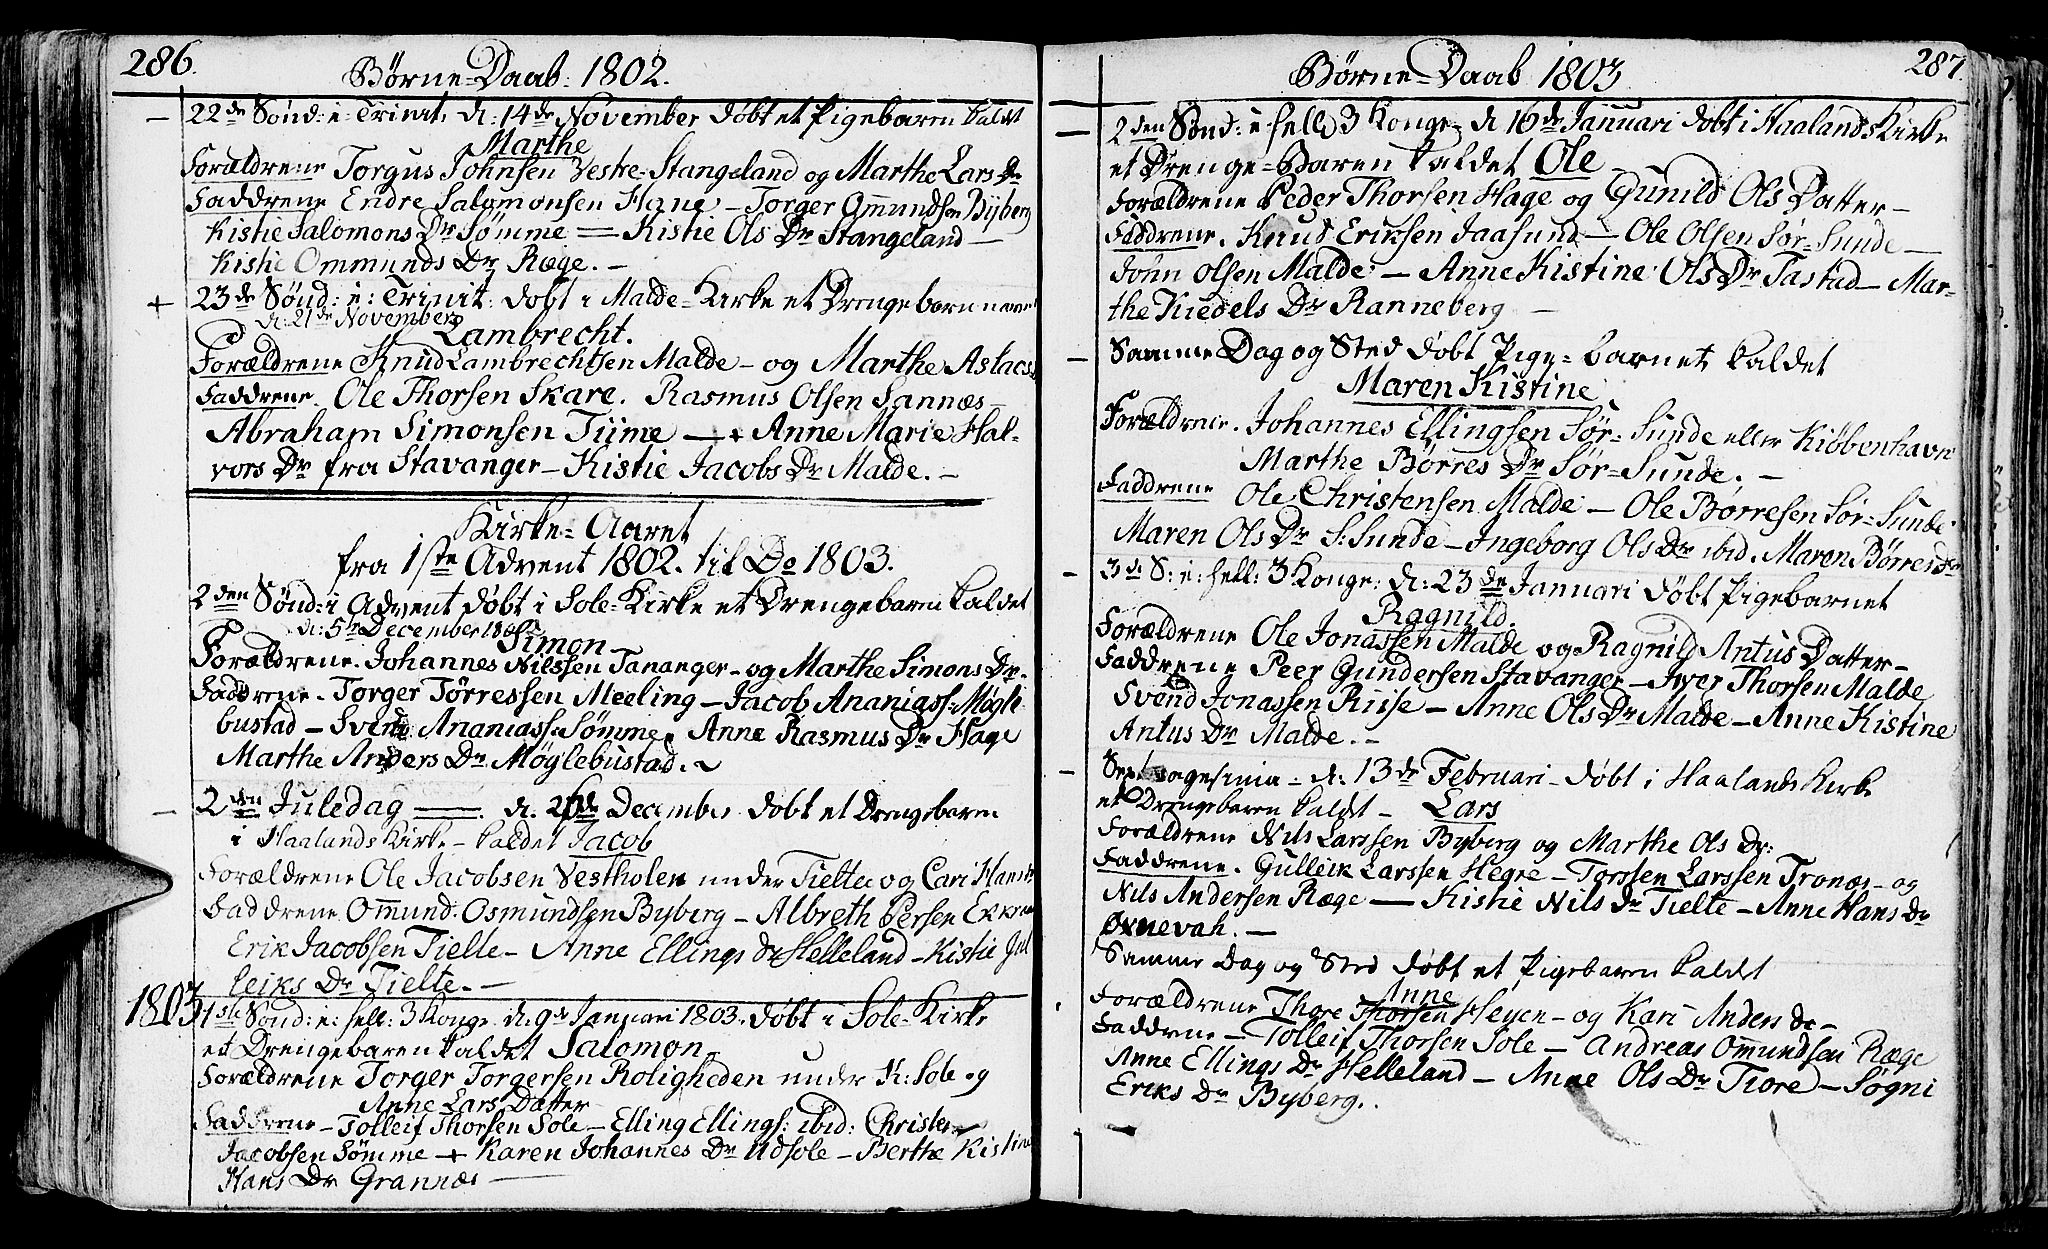 286.
Børne-Daab: 1802.
22de Sønd: e: Trinit: d: 14de November døbt et Pigebaren kaldt
Marthe
Forældrene Torgus Johnsen Vestre-Stangeland og Marthe Lars Dr
Faddrene Endre Salomonsen Hane - Torger Ommundsen Byberg
Kistie Salomons Dr Sømme = Kistie Ols Dr Stangeland -
Kistie Ommunds Dr Ræge. -
+ 23de Sønd: e: Trinit: døbt i Malde-Kirke et Drengebarn navnl
d: 21de November
Lambrecht.
Forældrene Knud Lambrechtsen Malde - og Marthe Aslacs
Faddrene. Ole Thorsen Skare. Rasmus Olsen Sannæs -
Abraham Simonsen Tiime - + Anne Marie Hal-
vors Dr fra Stavanger - Kistie Jacobs Dr Malde. -
Kirke-Aaret
fra 1ste Advent 1802. til Do 1803.
2den Sønd: i Advent døbt i Sole-Kirke et Drengebaren kaldet
d: 5te December 1802
Simon
Forældrene. Johannes Nilssen Tananger - og Marthe Simons Dr.
Faddrene. Torger Tørressen Meeling - Jacob Ananiass: Møgle-
bustad - Svend Ananiass: Sømme, Anne Rasmus Dr Hage
Marthe Anders Dr Møglebustad. ~
- 2den Juledag - d. 26de December døbt et Drengebaren
i Haalands Kirke - kaldet Jacob
Forældrene Ole Jacobsen Vestholen under Tielte og Cari Hans
Faddrene Ommund Osmundsen Byberg - Albreth Persen
Erik Jacobsen Tielte - Anne Ellings Dr Helleland - Kistie Gul
leiks Dr Tielte. -
1803 1ste Sønd: e: hell: 3 Konge. d: 9de Januari 1803. døbt i Sole-Kirke
et Drengebaren kaldet Salomon
Forældrene Torger Torgersen Roligheden under K: Sole og
Anne Lars Datter
Faddrene - Tolleif Thorsen Sole - Elling Ellings: ibid: Christen
Jacobsen Sømme + Karen Johannes Dr Udsole - Berthe Kistine
Hans Dr Grannæs -
287.
Børne-Daab 1803
2den Sønd: e hell: 3 Konge. d 16de Januari døbt i Haalands Kirke
et Drenge-Baren kaldet Ole
Forældrene Peder Thorsen Hage og Gunild Ols Datter -
Faddrene. Knud Eriksen Jaasund - Ole Olsen Sør-Sunde -
John Olsen Malde - Anne Kistine Ols Dr Tastad - Mar-
the Kiedels Dr Ranneberg -
- Samme Dag og Sted døbt Pige-barnet kaldet
Maren Kistine
Forældrene. Johannes Ellingsen Sør-Sunde eller Kiøbenhavn
Marthe Børres Dr Sør-Sunde. -
Faddrene Ole Christensen Malde - Ole Børresen Sør-Sunde
Maren Ols Dr S: Sunde - Ingeborg Ols Dr ibid. Maren Børres Dr
- 3de S: e: hell: 3 Konge: d: 23de Januari døbt Pigebarnet
Ragnild.
Forældrene Ole Jonassen Malde og Ragnild Antus Datter -
Faddrene Peer Gundersen Stavanger - Iver Thorsen Malde
Svend Jonassen Risse - Anne Ols Dr Malde - Anne Kistine
Antus Dr Malde. -
- Septuagesima - d: 13de Februari - døbt i Haalands Kirke
et Drengebaren kaldt - Lars
Forældrene Nils Larssen Byberg og Marthe Ols Dr:
Faddrene. Gulleik Larssen Hegre - Torssen Larssen Tronæs - og
Nils Andersen Ræge - Kistie Nils Dr Tielte - Anne Hans Dr
Øxnevah. -
Samme Dag og Sted døbt et Pigebaren kaldt
Anne
Forældrene Thore Thorsen Høyen - og Kari Anders Dr -
Faddrene - Tolleif Thorsen Sole - Andreas Ommundsen Ræge
Anne Ellings Dr Helleland - Anne Ols Dr Tiore - Søgni
Eriks Dr Byberg.